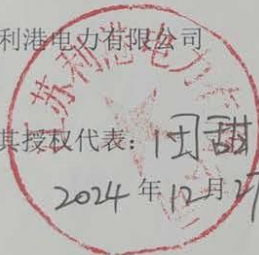 利港电力有限公司
苏利港电力
其授权代表：闫甜
2024年12月27